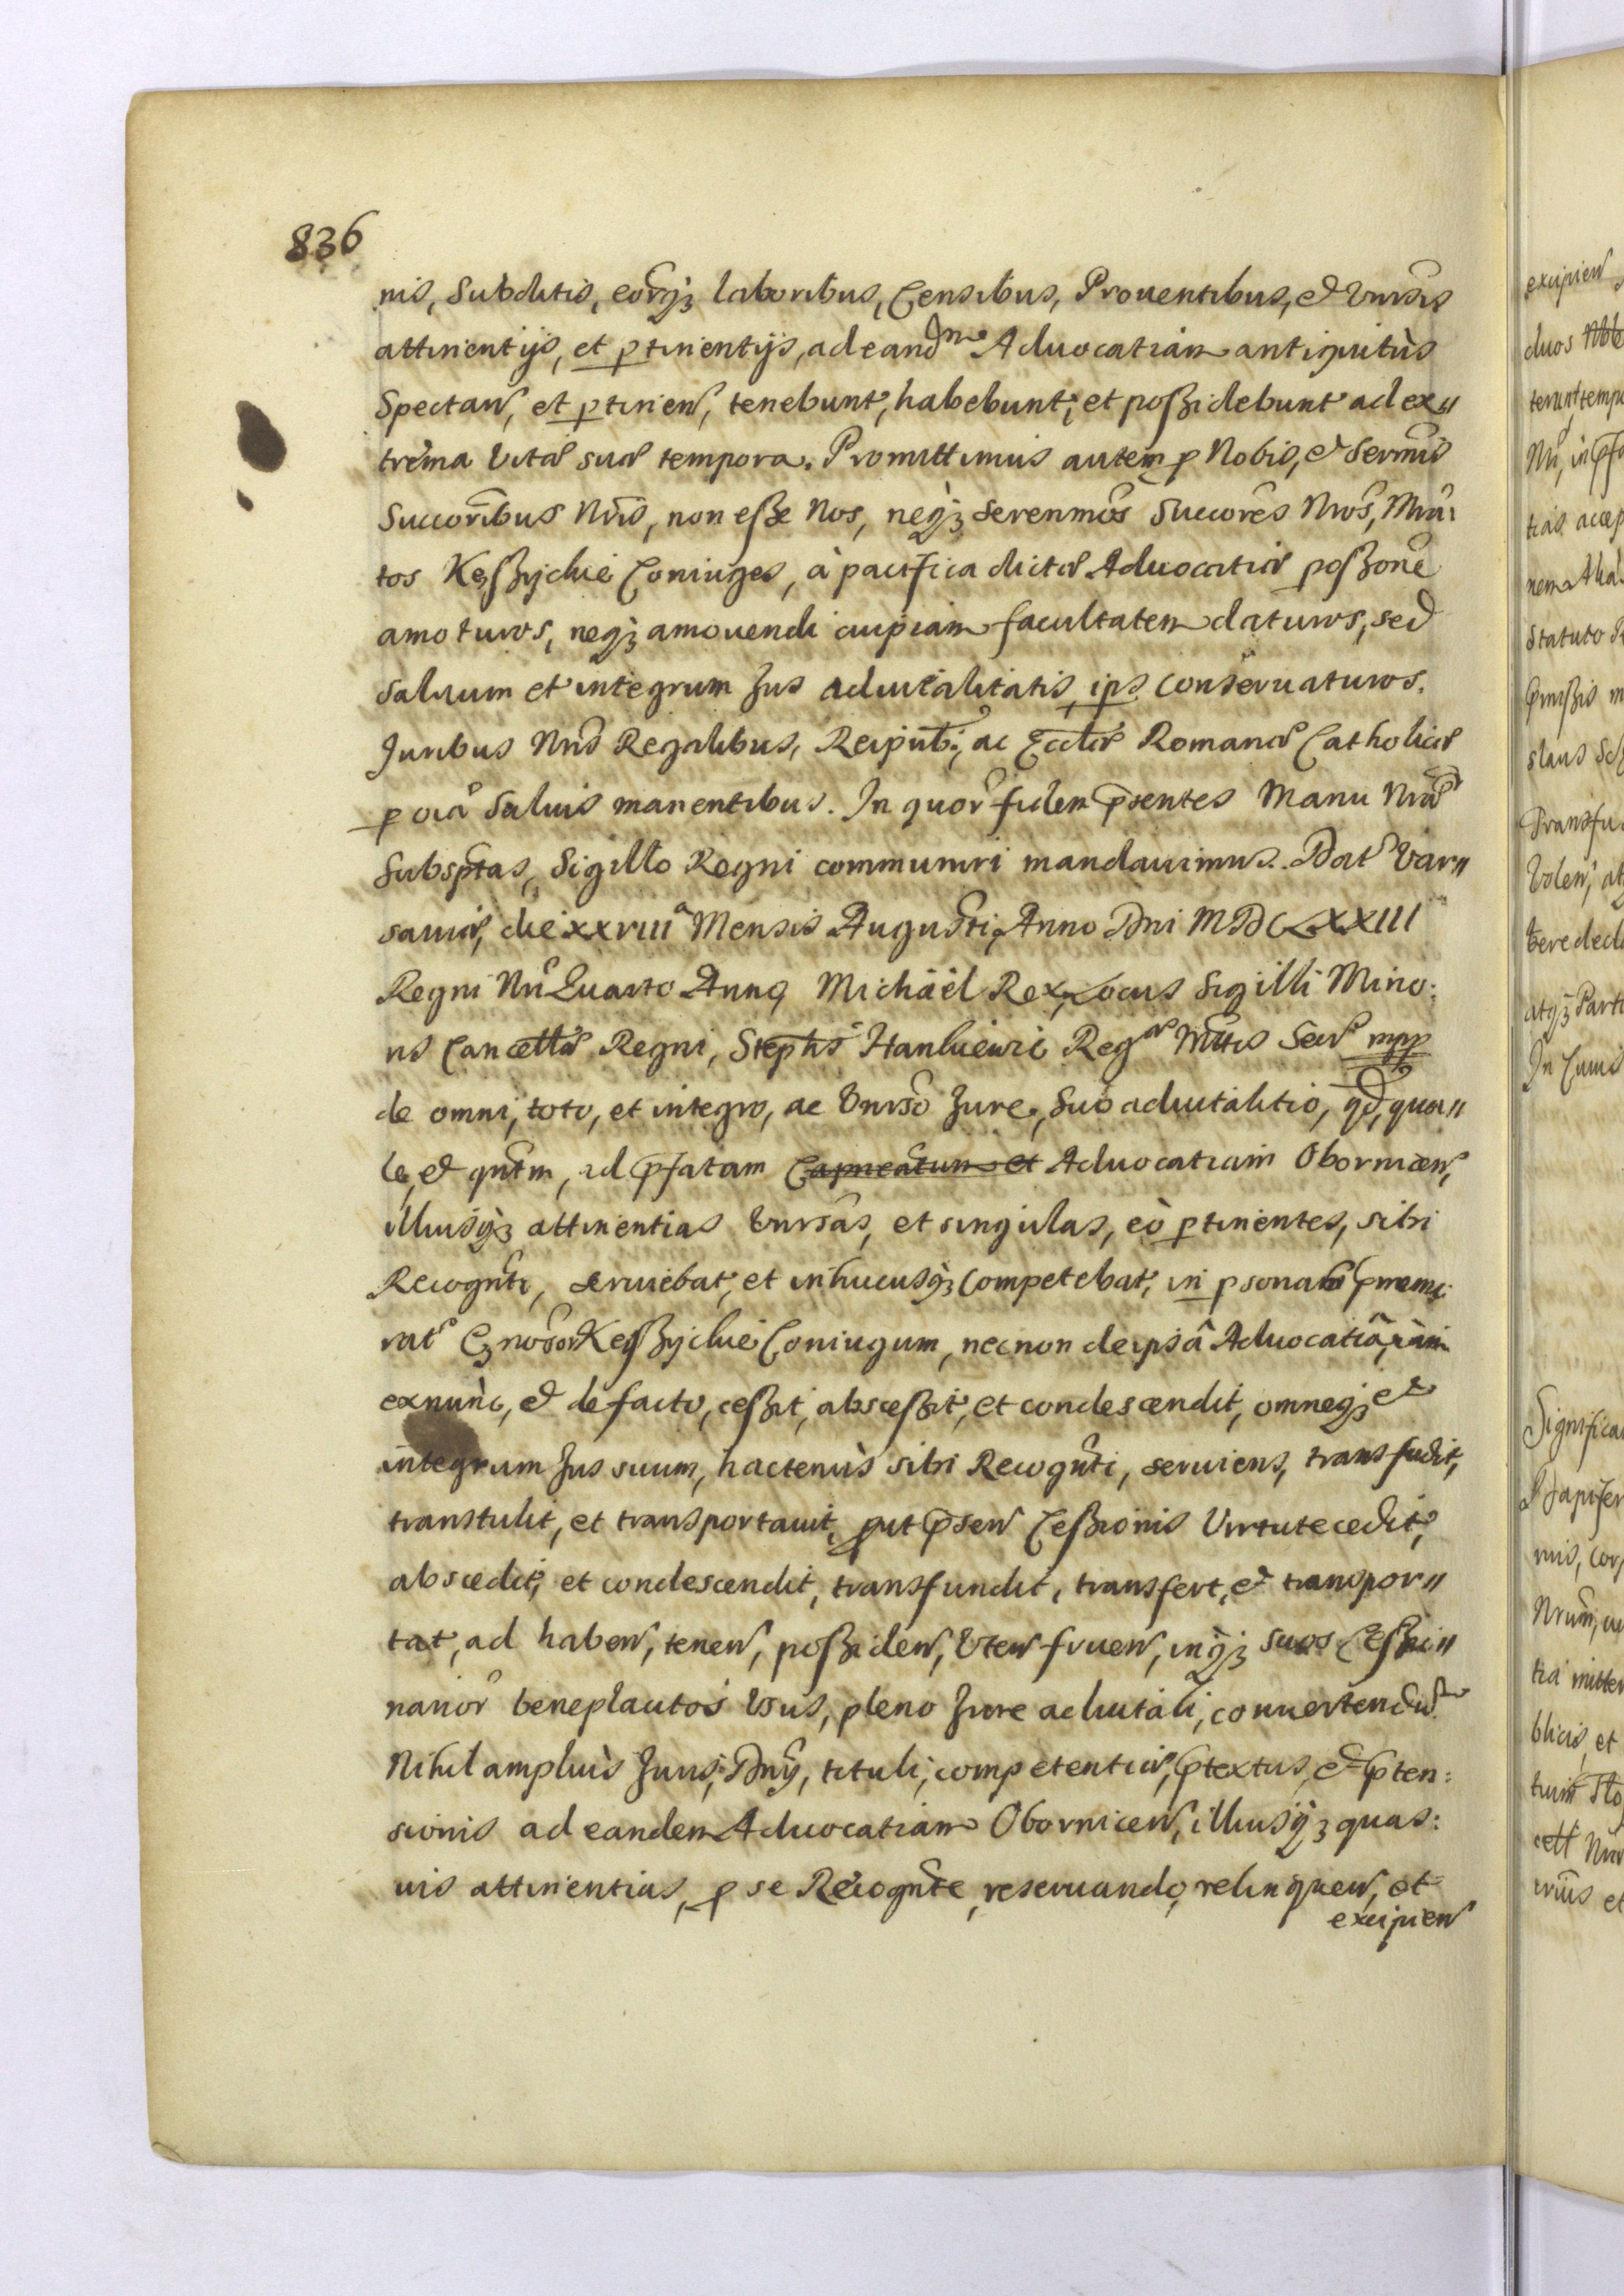 836
nis, Subditis, eorq3 laboribus, Censibus, Prouentibus, et Vnrsis
attinentijs, et ptinentijs, ad eandm Aduocatiam antiquitùs
Spectan, et ptinen, tenebunt, habebunt, et poßidebunt ad ex"
trema Vitæ suæ tempora. Promittimus autem p Nobis, et Sermis
Succoribus Nris, non eße Nos, neq3 Serenmos Succores Nros, Mra:
tos Keßzychie Coniuges, à pacifica dictæ Aduocatiæ poßzone
amoturos, neq3 amouendi cuipiam facultatem daturos, sed
Saluum et integrum Jus aduitalitatis ips conseruaturos.
Juribus Nris Regalibus, Reipub: ac Eccliæ Romanæ Catholicæ
p oia Saluis manentibus. In quor fidem psentes Manu Nra
Subsptas, Sigillo Regni communiri mandauimus. Dat Var"
sauiæ, die xxviii a Mensis Augusti, Anno Dni MDCLXXIII
Regni Nri Quarto Anno, Michaël Rex, Locus Sigilli Mino:
ris Cancellæ Regni, Stephs Hankiewic Regæ Mttis Secr mpp
de omni, toto, et integro, ac Vnrso Jure, Suo aduitalitio, qd, qua"
le, et qntm, ad pfatam Capneatum et Aduocatiam Obornicen,
illiusq3 attinentias Vnrsas, et singulas, eò ptinentes, sibi
Recognti, seruiebat, et inhucusq3 Competebat, in psonas pmemo
rat Gnosor Keßzychie Coniugum, necnon de ipsâ Aduocatiâ, iam
exnunc, et de facto, ceßit, absceßit, et condescendit, omneq3 et
integrum Jus suum, hactenùs sibi Recognti, seruiens, transfudit,
transtulit, et transportauit, put psen Ceßionis Virtute cedit,
abscedit, et condescendit, transfundit, transfert, et transpor"
tat, ad haben, tenen, poßiden, Vten fruen, inq3 suos Ceßio"
narior beneplacitos Vsus, pleno Jure aduitali, conuertendu
Nihil ampliùs Juris, Dnij, tituli, competentiæ, ptextus, et pten:
sionis ad eandem Aduocatiam Obornicen, illiusq3 quas:
uis attinentias, p se Recognte, reseruando, relinquen, et
excipien